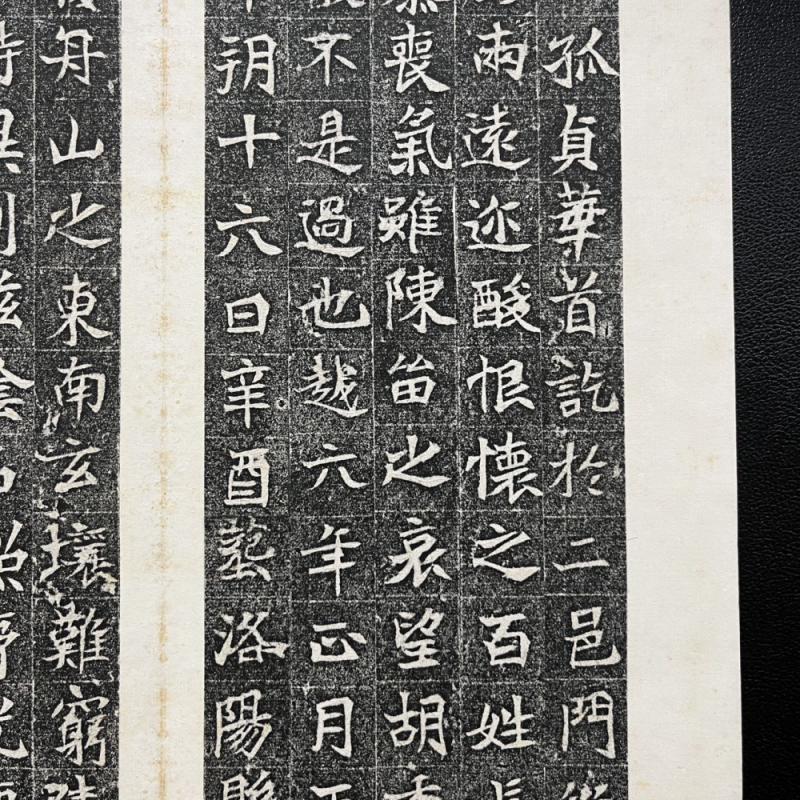 孤貞華首訖於二邑門
雨遠迩酸恨懷之百姓
喪氣雖陳留之哀望胡
不是過也越六年正月
朔十六日辛酉葬洛陽縣
舟山之東南玄壤難窮